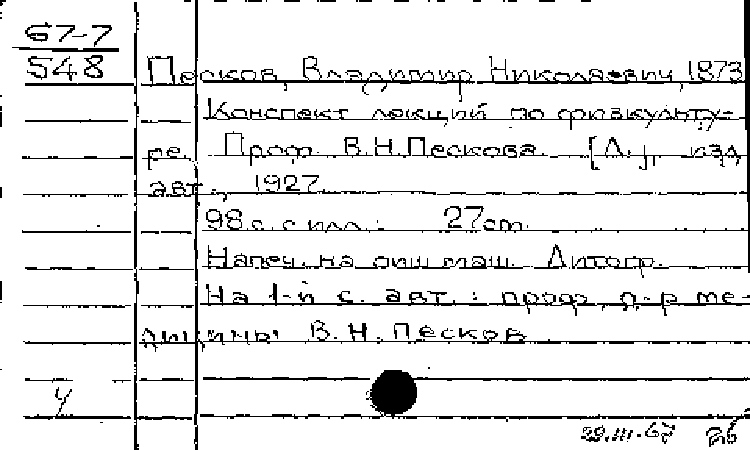 67-7
548
Песков, Владимир Николаевич, 1873
Конспект лекций по физкульту-
ре. Проф. В.Н.Пескова. [Л.], изд.
авт., 1927.
98 с. с илл.; 27 cm.
Напеч. на пиш. маш. Литогр.
На 1-й с. авт.: проф. д-р ме-
дицины В.Н.Песков
У
29.III-67 26